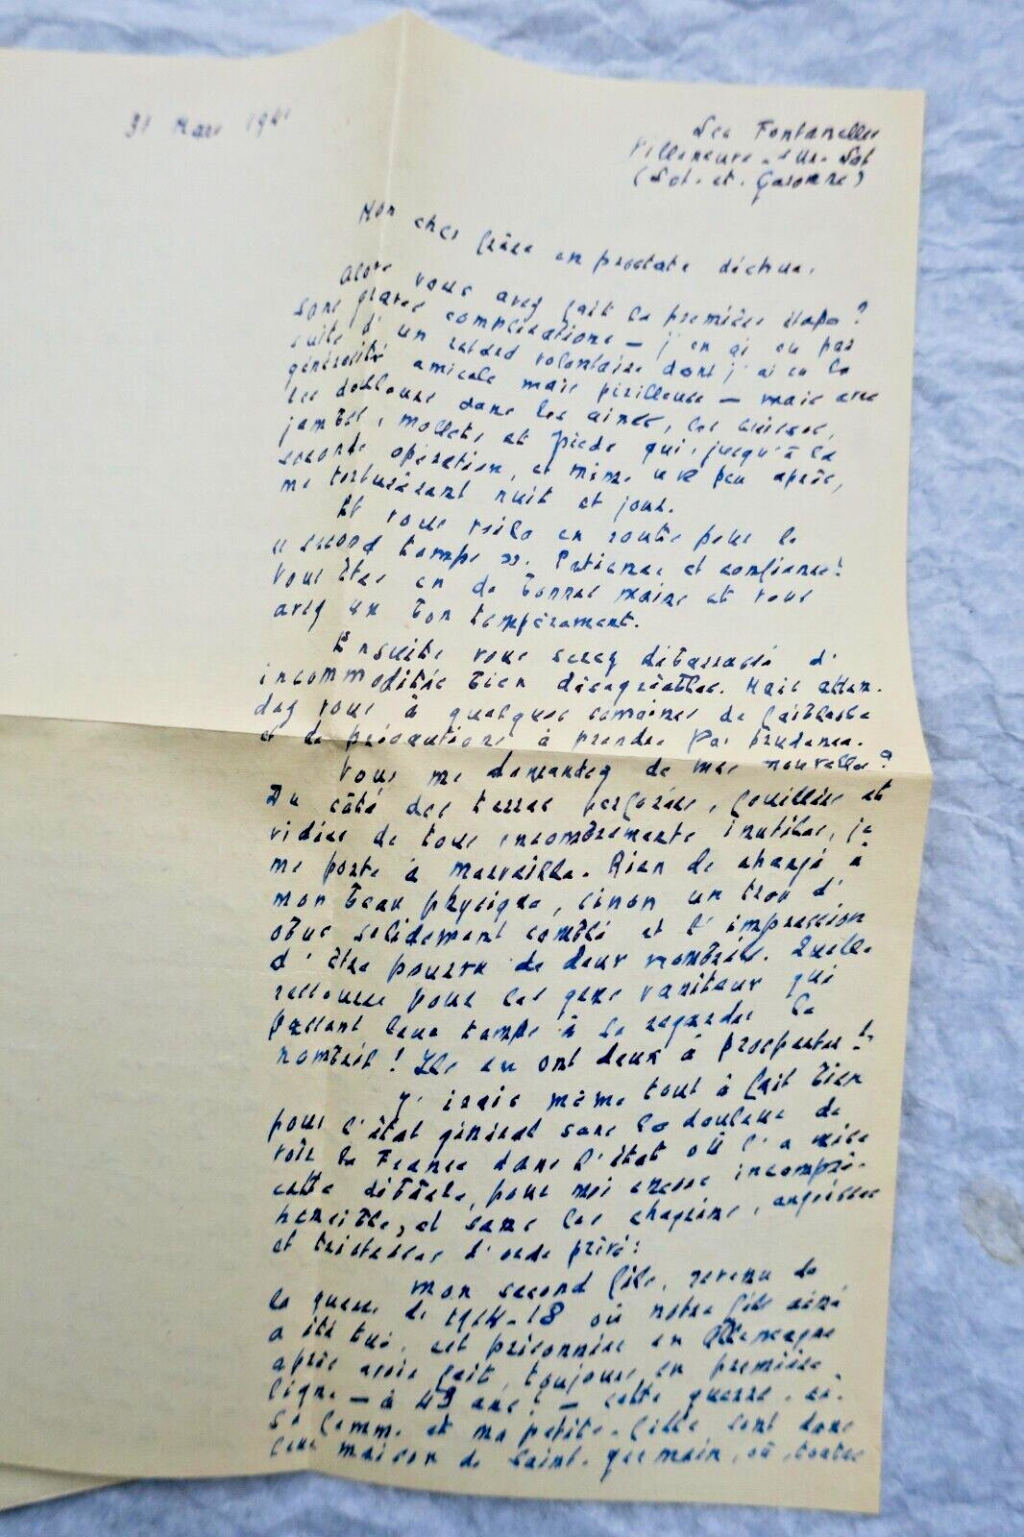 31 Mars 1941
Les Fontanelles
Villeneuve-sur-Lot
(Lot-et-Garonne)
Mon cher frère en prostate déchue,
Alors vous avez fait la première étape ?
sans graves complications — j'en ai eu par
suite d'un retard volontaire dont j'ai eu la
générosité amicale mais périlleuse — mais avec
des douleurs dans les aines, les cuisses,
jambes, mollets et pieds qui, jusqu'à la
seconde opération, et même un peu après,
me torturèrent nuit et jour.
Et vous voilà en route pour le
« second temps ». Patience et confiance !
Vous êtes en de bonnes mains et vous
avez un bon tempérament.
Ensuite vous serez débarrassé d'
incommodités bien désagréables. Mais atten-
dez vous à quelques semaines de faiblesse
et de précautions à prendre par prudence.
Vous me demandez de mes nouvelles ?
Du côté des terres perforées, fouillées et
vidées de tous encombrements inutiles, je
me porte à merveille. Rien de changé à
mon beau physique, sinon un trou d'
obus solidement comblé et l'impression
d'être pourvu de deux nombrils. Quelle
ressource pour les gens vaniteux qui
passent leur temps à se regarder le
nombril ! Ils en ont deux à prospecter !
J'irais même tout à fait bien
pour l'état général sans la douleur de
voir la France dans l'état où l'a mise
cette débâcle, pour moi encore incompré-
hensible, et sans les chagrins, angoisses
et tristesses d'orde privé :
Mon second fils, revenu de
la guerre de 1914-18 où notre fils aîné
a été tué, est prisonnier en Allemagne
après avoir fait, toujours en première
ligne — à 43 ans ! — cette guerre-ci.
Sa femme et ma petite-fille sont dans
leur maison de Saint-Germain, où, toutes